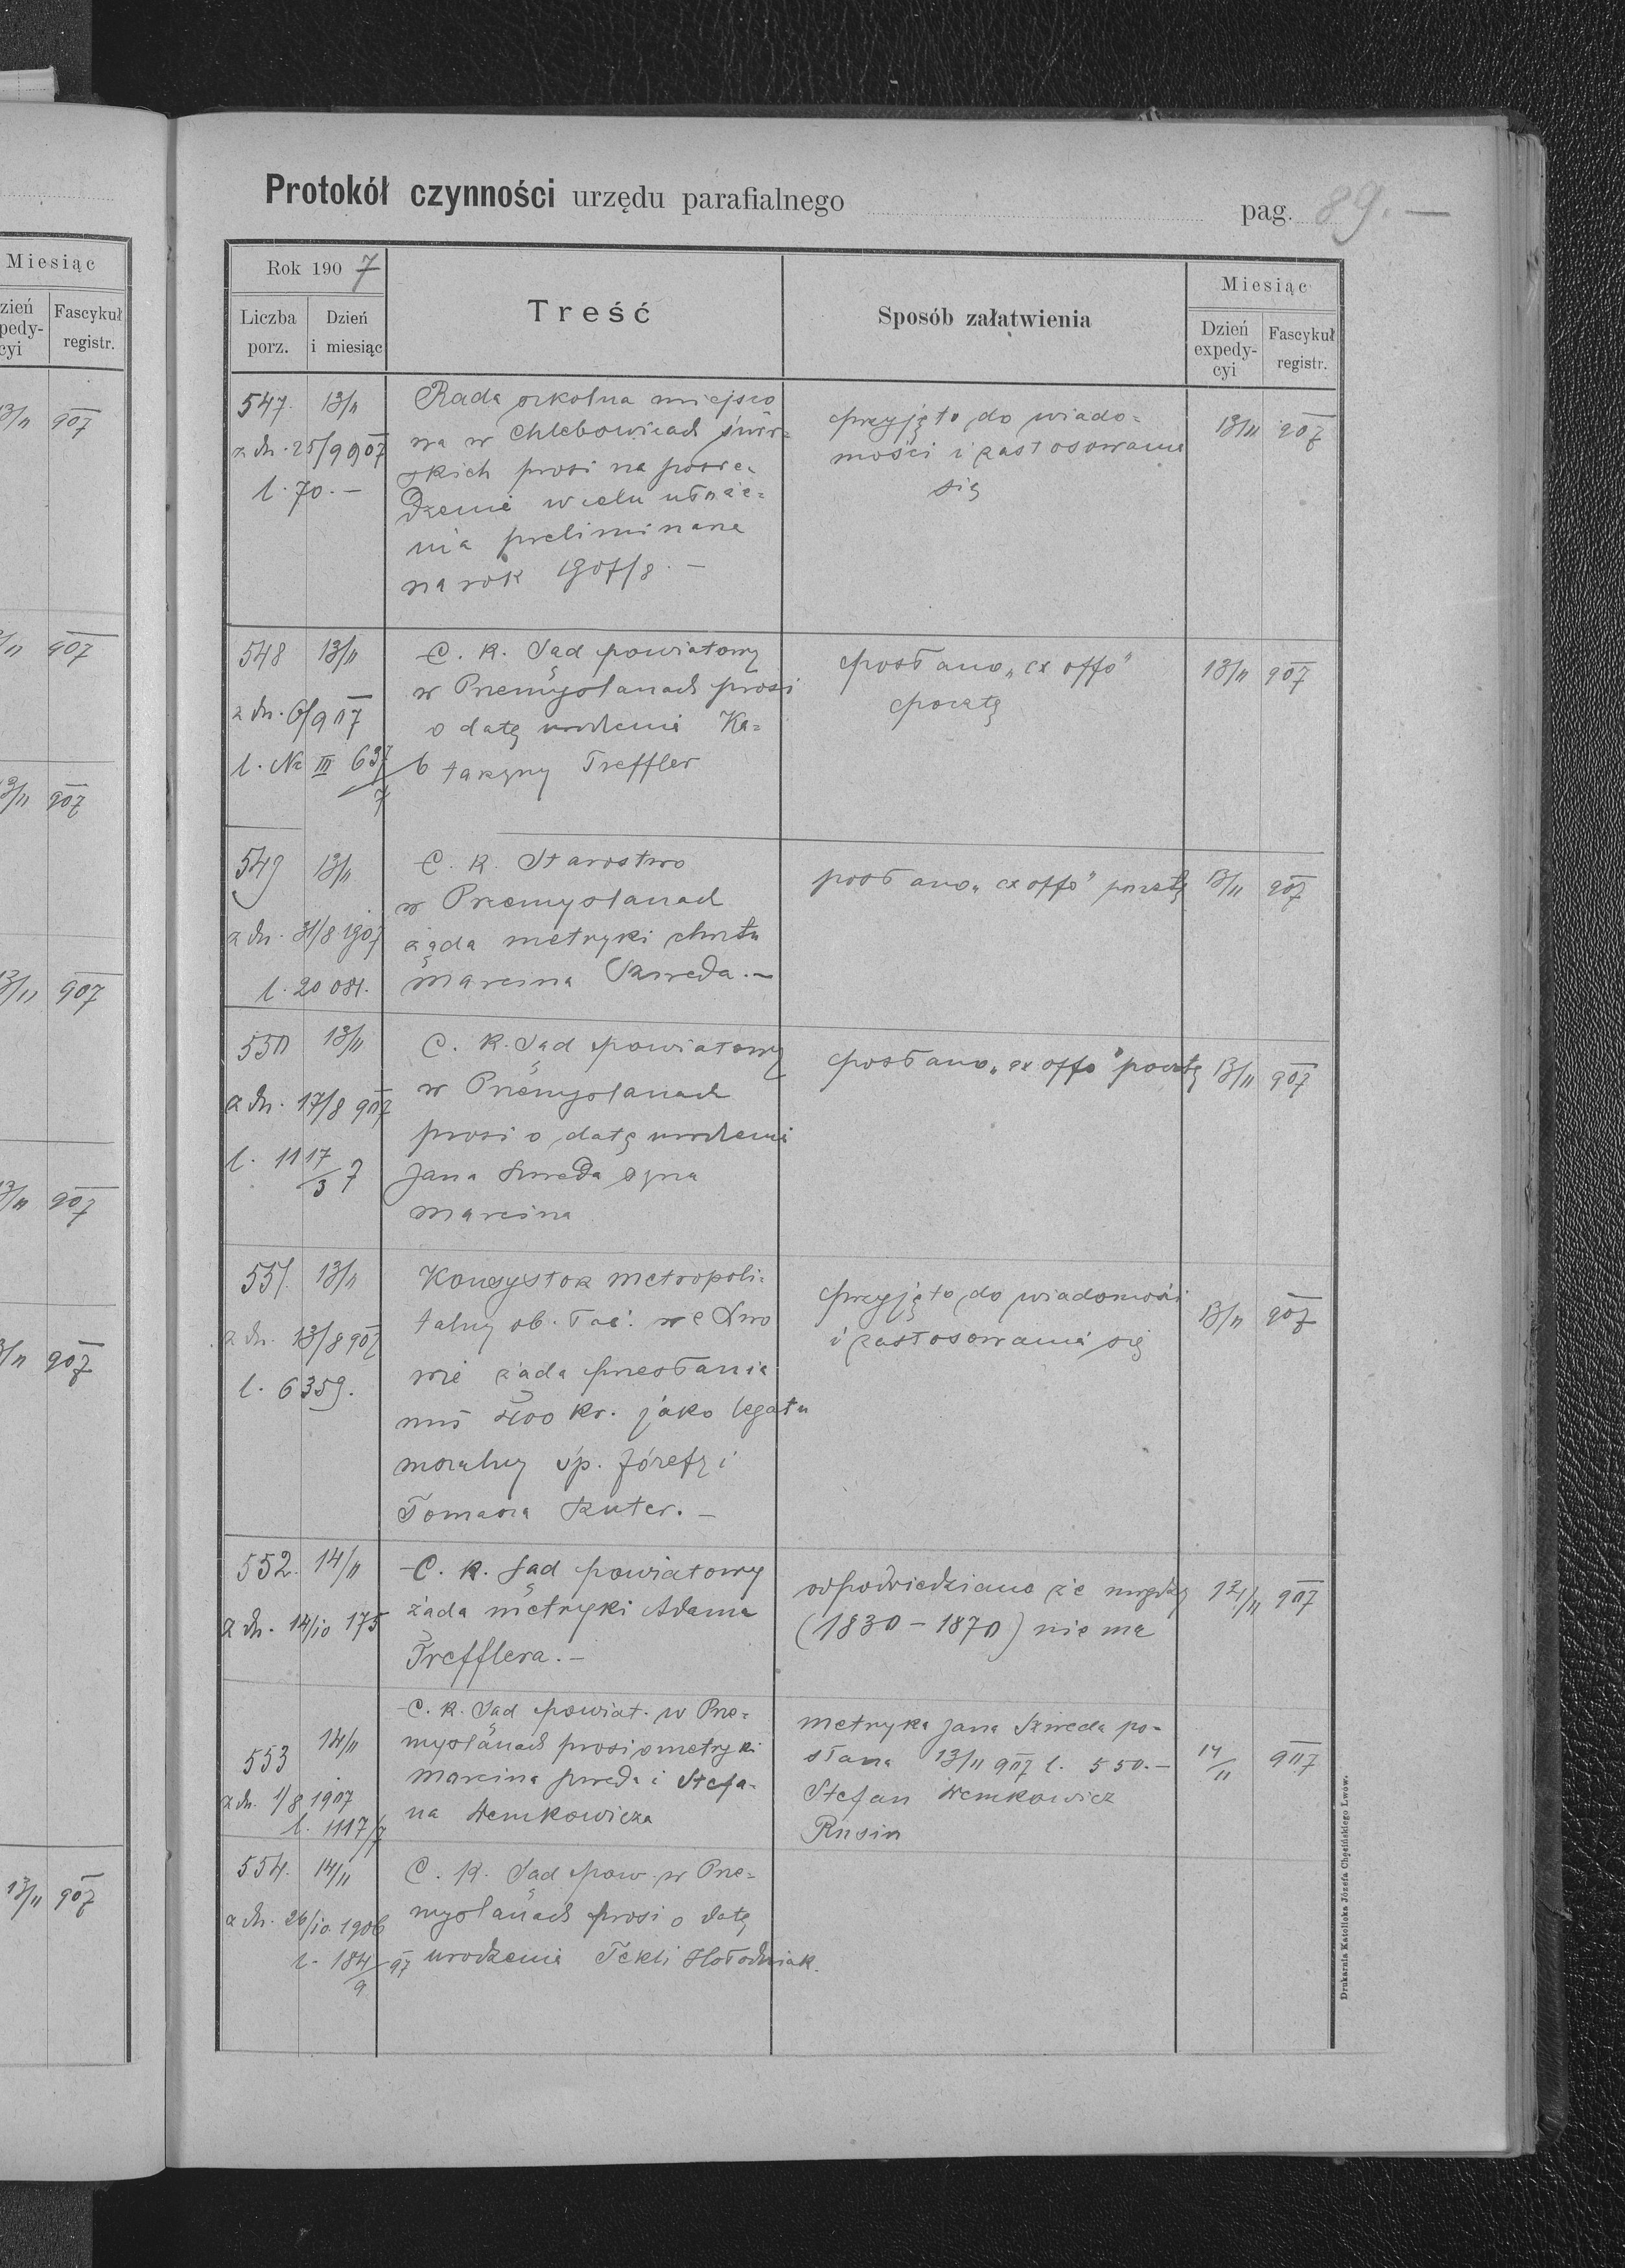 Protokół czynności urzędu parafialnego pag. 89.—
Rok 1907
Liczba porz.
Dzień i miesiąc
Treść
Sposób załatwienia
Miesiąc
Dzień expedycyi
Fascykuł registr.
547. 13/11
z dn. 25/9 907
l. 70.—
Rada szkolna miejsco
wa w Chlebowicach świr-
skich prosi na posie-
dzenie w celu ułoże-
nia preliminarza
na rok 1907/8.—
przyjęto do wiado-
mości i zastosowania
się
13/11 907
548 13/11
z dn. 6/9 907
l. Nc III 637/7
C. k. Sąd powiatowy
w Przemyślanach prosi
o datę urodzenia Ka-
6 tarzyny Treffler
posłano „ex offo"
pocztą
13/11 907
549 13/11
z dn. 31/8 1907
l. 20081.
C. k. Starostwo
w Przemyślanach
żąda metryki chrztu
Marcina Szweda.—
posłano „ex offo" pocztą
13/11 907
550 13/11
z dn. 17/8 907
l. 1117/3 7
C. k. Sąd powiatowy
w Przemyślanach
prosi o datę urodzenia
Jana Szweda syna
Marcina
posłano „ex offo" pocztą
13/11 907
551. 13/11
z dn. 13/8 907
l. 6359.
Konsystorz metropoli-
talny ob. łać. we Lwo
wie żąda przesłania
400 kr. jako legatu
śp. Józefy i
Tomasza Kuter.—
przyjęto do wiadomości
i zastosowania się
13/11 907
552. 14/11
z dn. 14/10 175
C. k. Sąd powiatowy
żąda metryki Adama
Trefflera.—
odpowiedziano że
(1830–1870) nie ma
907
553 14/11
z dn. 1/8 1907
l. 1117/7
C. k. Sąd powiat. w Prze-
myślanach prosi o metryki
Marcina Szweda i Stefa-
na Demkowicza
metryka Jana Szweda po-
słana 13/11 907 l. 550.—
Stefan Demkowicz
Rusin
14/11 907
554. 14/11
z dn. 26/10 1906
l. 184/9 97
C. k. Sąd pow. w Prze-
myślanach prosi o datę
urodzenia Tekli Hołodniak.
Drukarnia Katolicka Józefa Chęcińskiego Lwów.
Miesiąc
zień
pedy-
cyi
Fascykuł
registr.
13/11 907
907
907
13/11 907
13/11 907
907
13/11 907